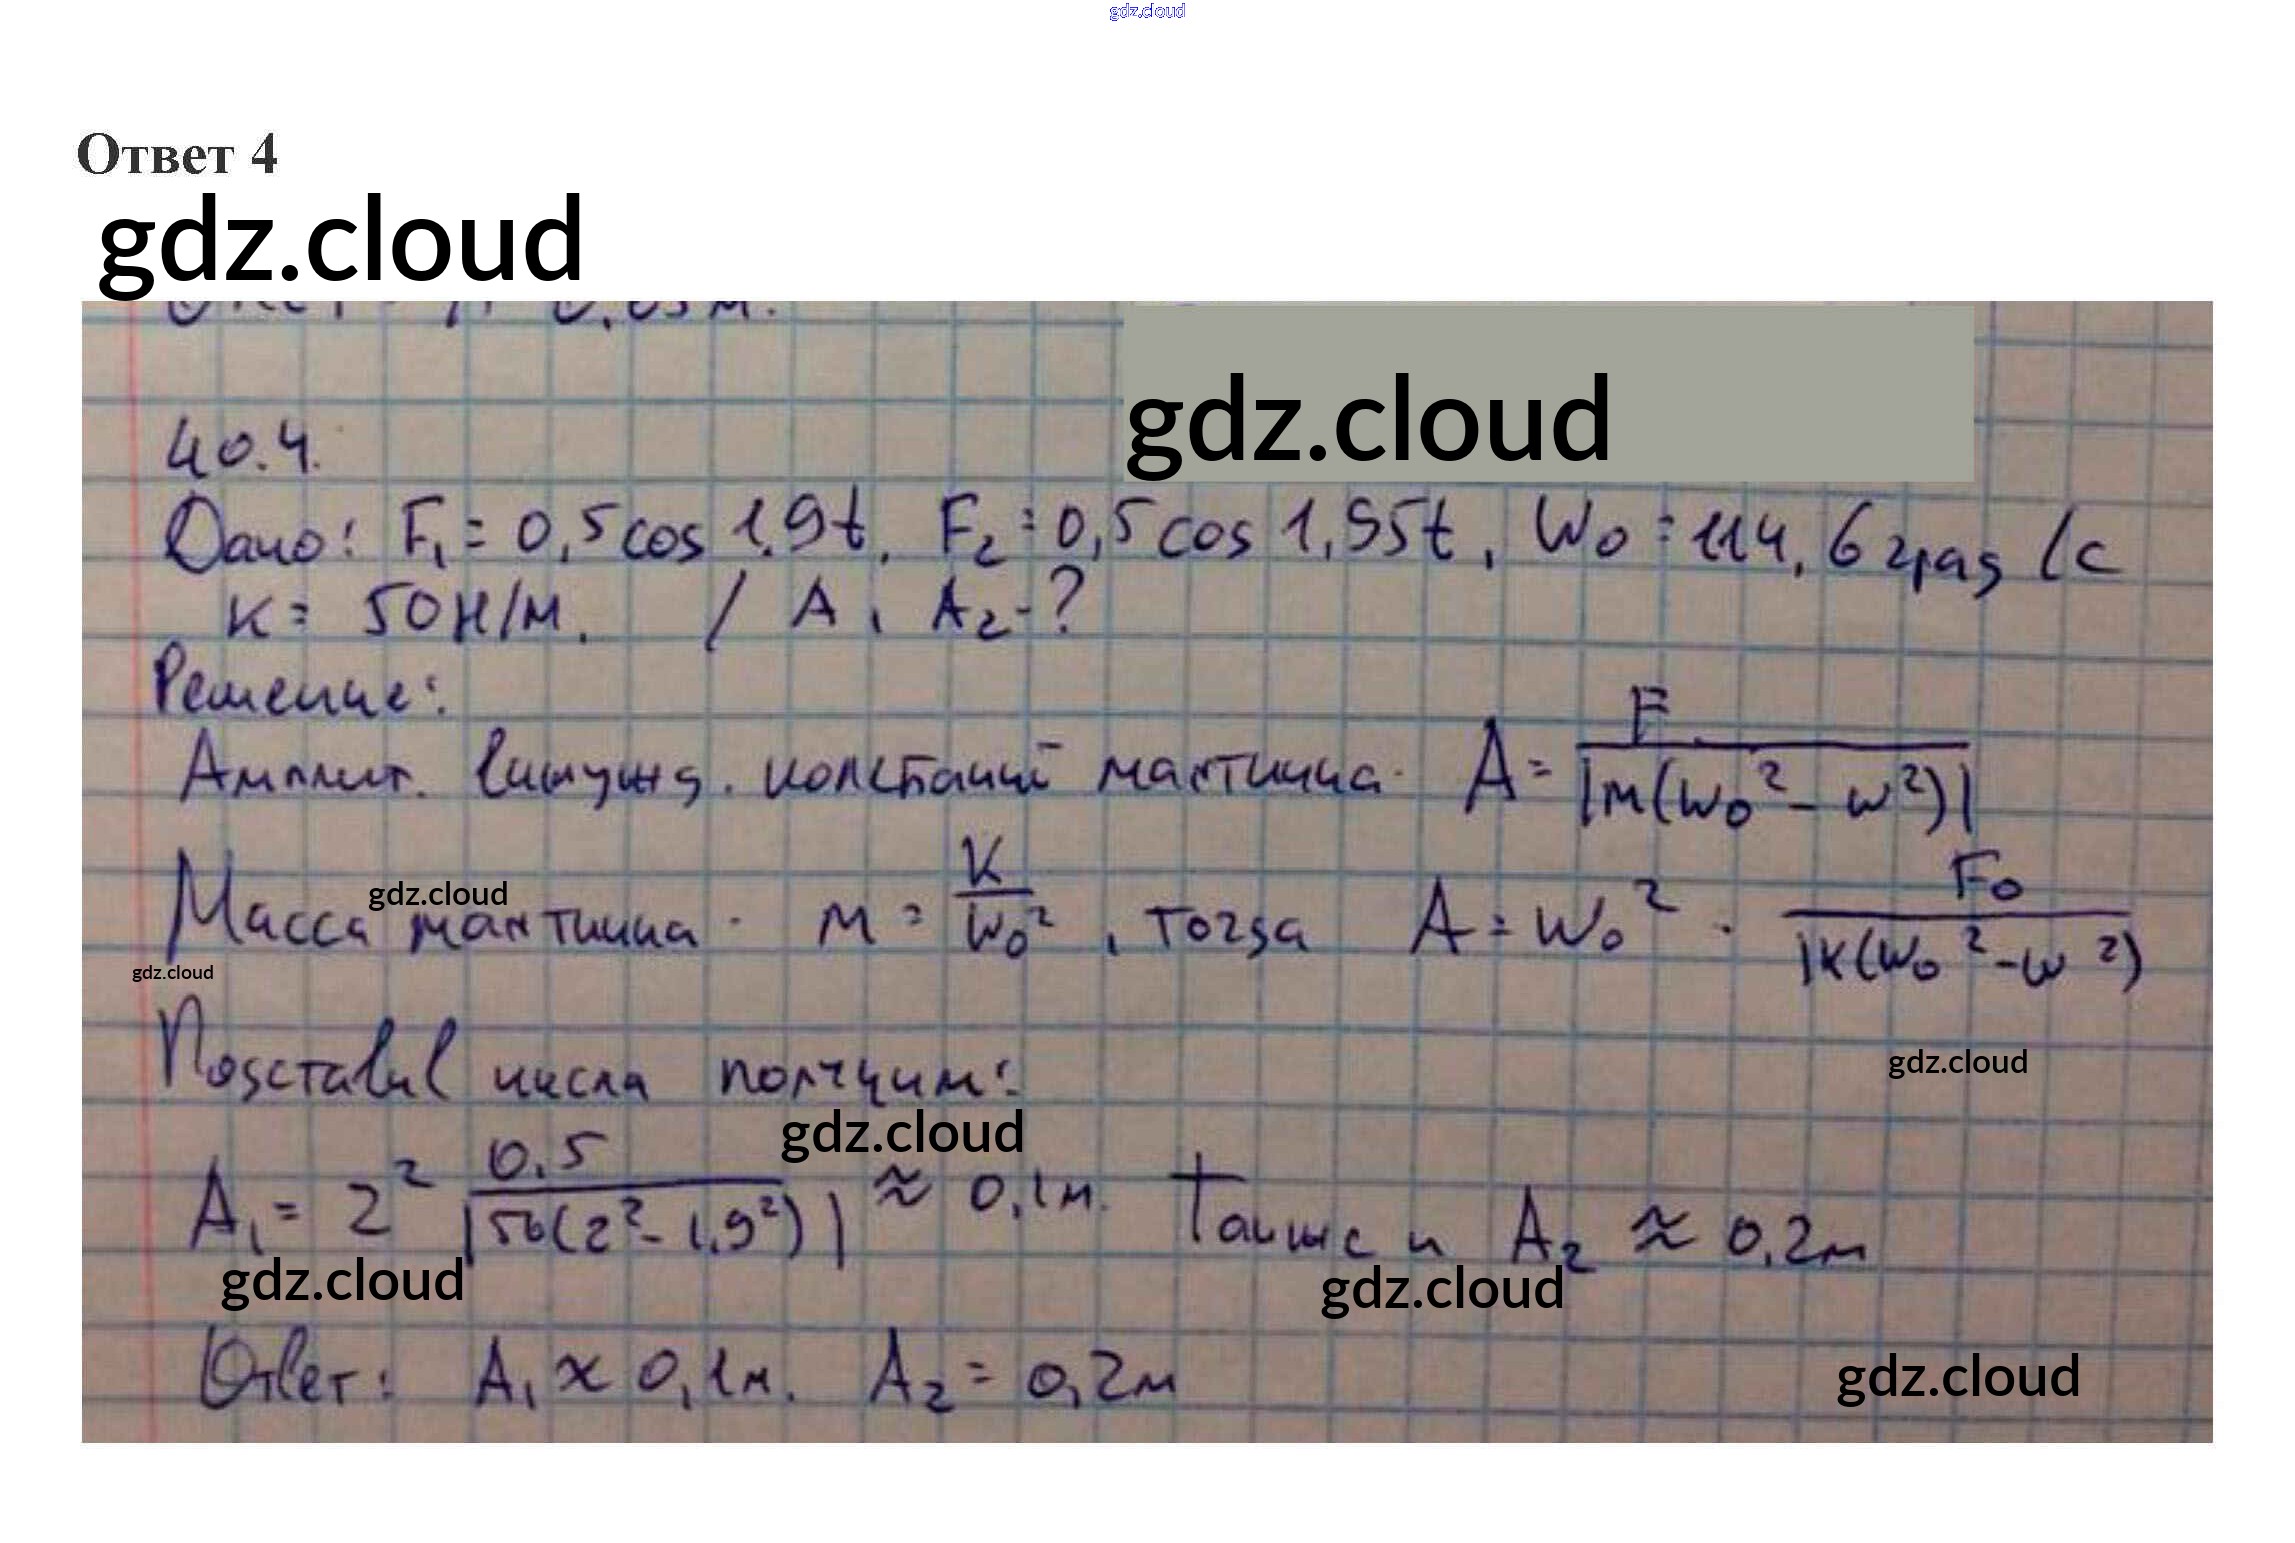 gdz.cloud
Ответ 4
gdz.cloud
0,03м.
gdz.cloud
40.4.
Дано: F₁ = 0,5cos 1,9t, F₂ = 0,5cos 1,95t, W₀ = 114,6 град/с
к = 50Н/м. / A, A₂-?
Решение:
Амплит. вынужд. колебаний маятника- A = F / |м(w₀² - w²)|
gdz.cloud
Масса маятника - м = К / W₀², тогда A = W₀² · F₀ / |к(w₀² - w²)
gdz.cloud
Подставив числа получим:
gdz.cloud
gdz.cloud
A₁ = 2² 0,5 / |50(2² - 1,9²)| ≈ 0,1м. Также и A₂ ≈ 0,2м
gdz.cloud
gdz.cloud
Ответ: A₁ ≈ 0,1м. A₂ = 0,2м
gdz.cloud